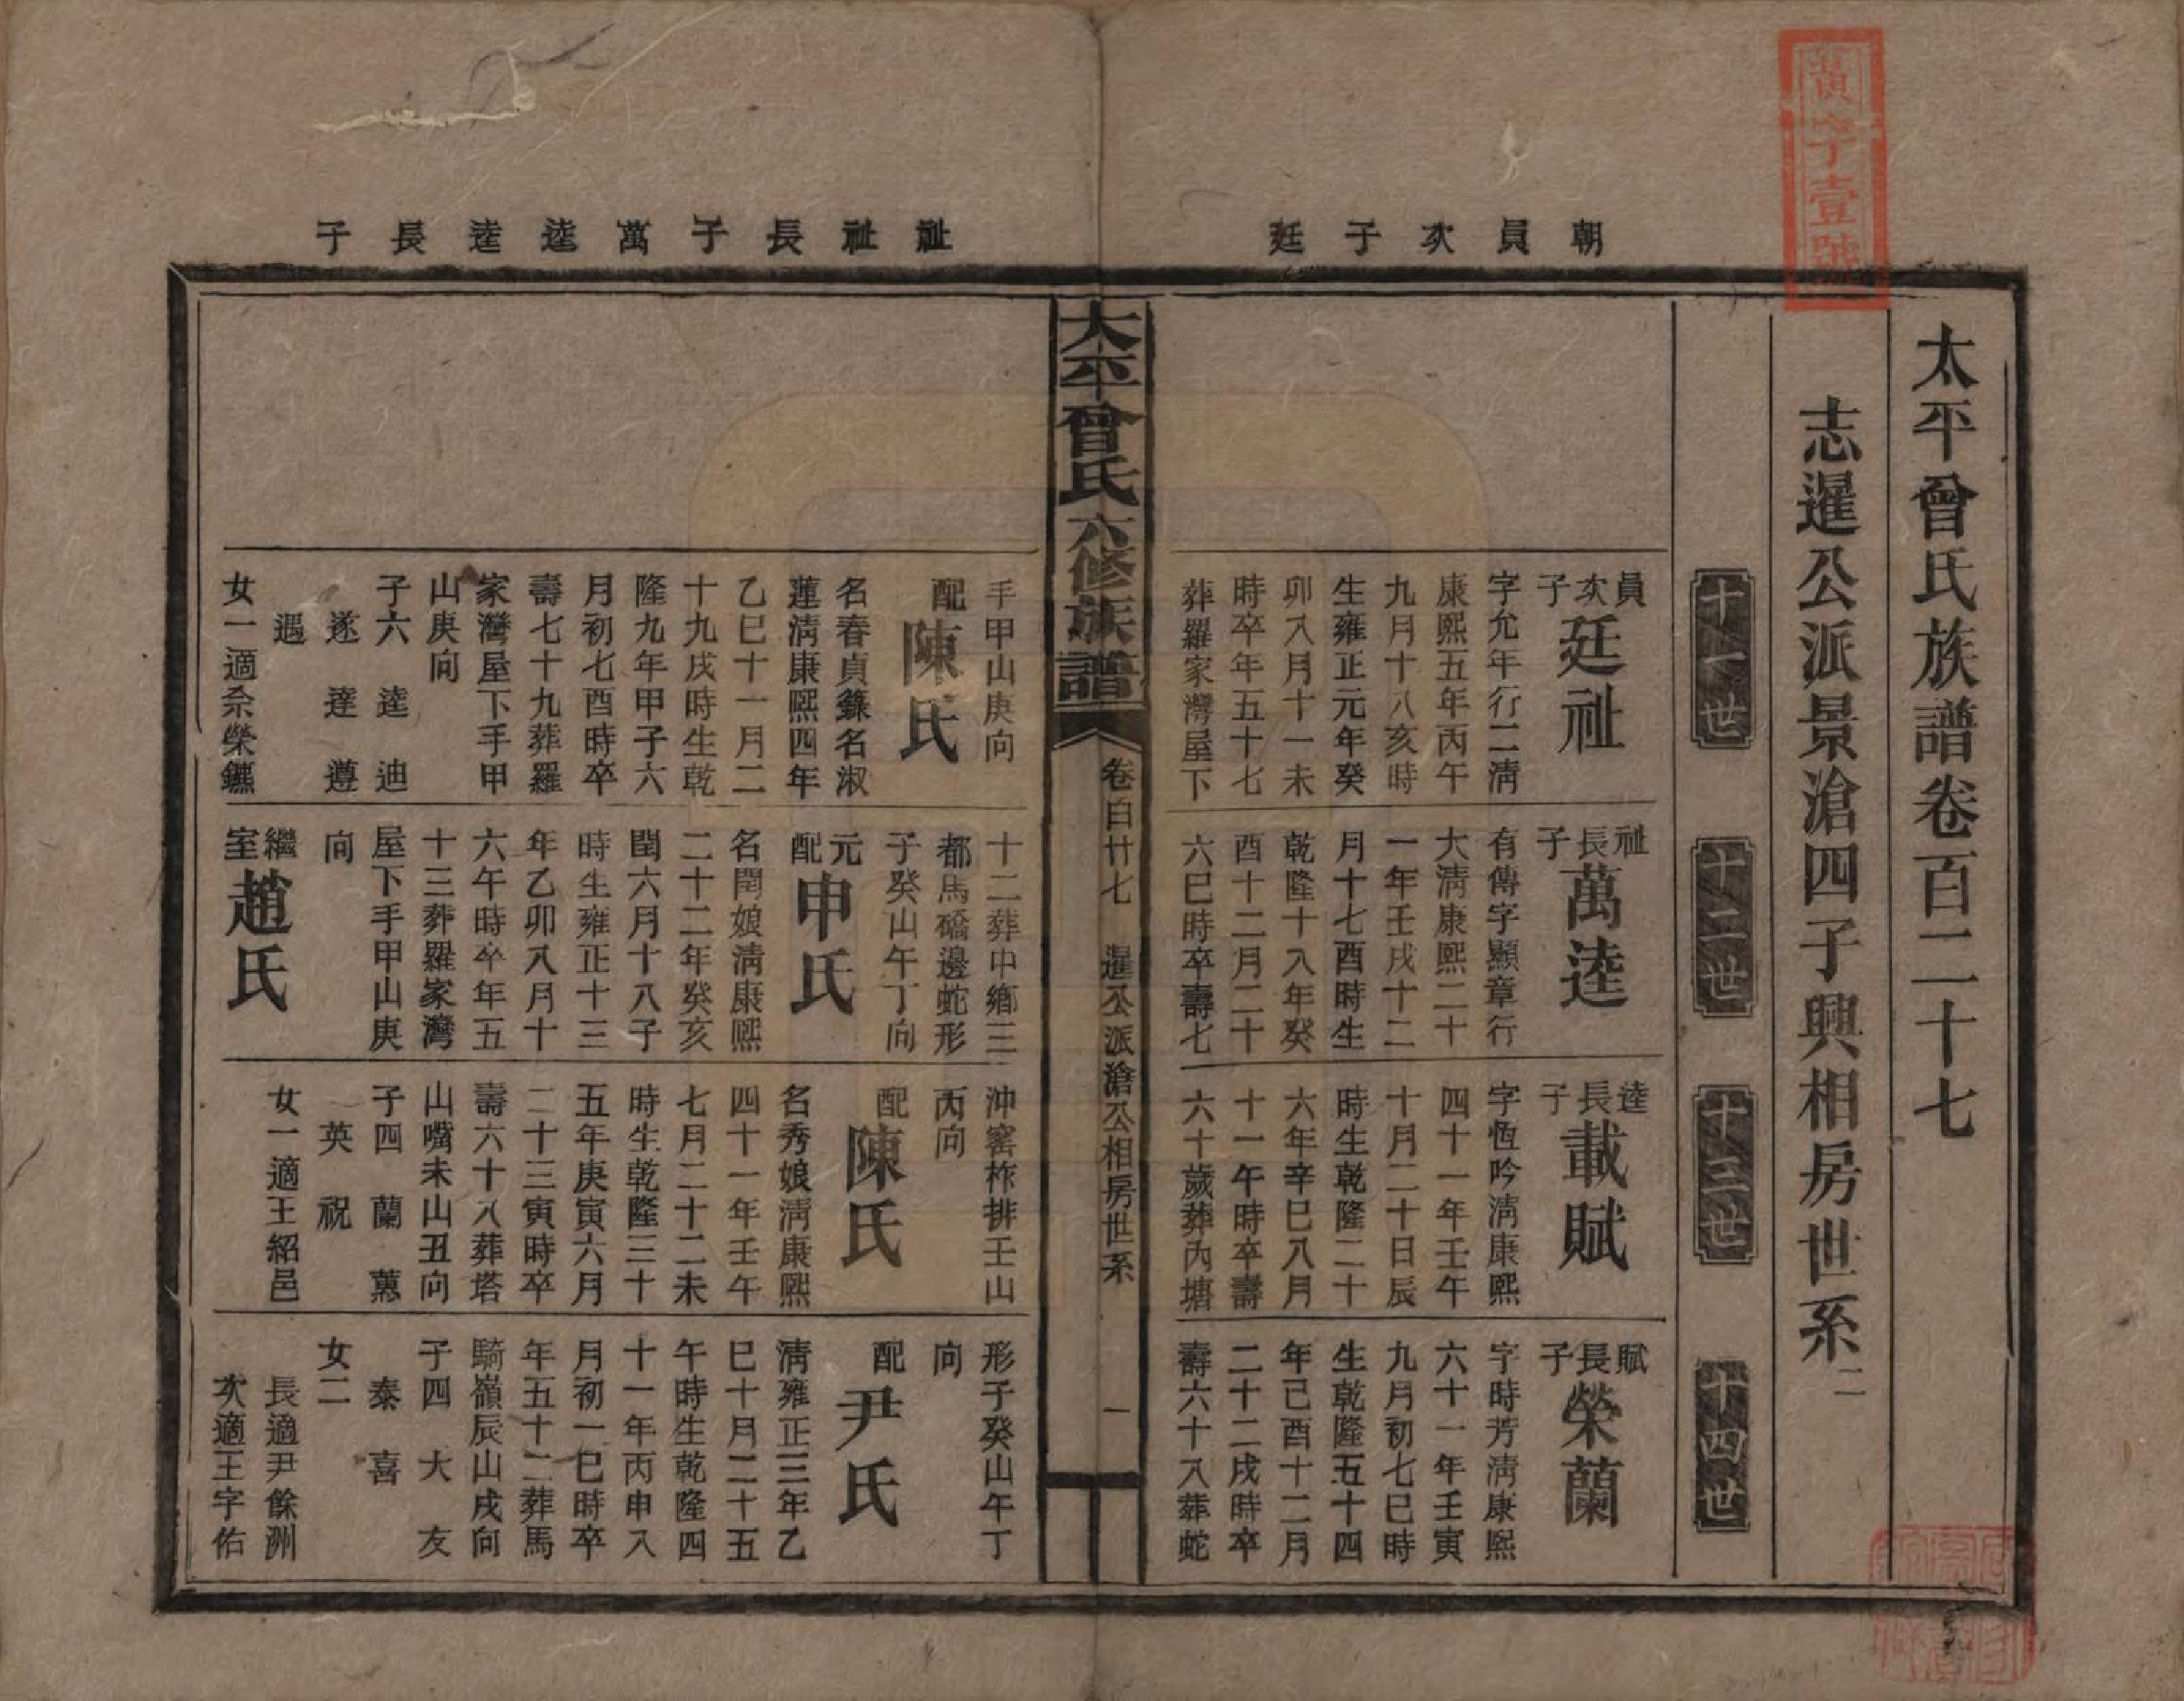 黃字壹號
朝員次子廷
祉祉長子萬逵逵長子
太平曾氏族譜卷百二十七
志暹公派景滄四子興相房世系二
十一世
十二世
十三世
十四世
員次子廷祉
字允年行二清
康熙五年丙午
九月十八亥時
生雍正元年癸
卯八月十一未
時卒年五十七
葬羅家灣屋下
手甲山庚向
配陳氏
名春貞籙名淑
蓮清康熙四年
乙巳十一月二
十九戌時生乾
隆九年甲子六
月初七酉時卒
壽七十九葬羅
家灣屋下手甲
山庚向
子六 逵 迪
遂 達 遵
遇
女一適佘榮鑣
祉長子萬逵
有傳字顯章行
大清康熙二十
一年壬戌十二
月十七酉時生
乾隆十八年癸
酉十二月二十
六巳時卒壽七
十二葬中鄉三
都馬礄邊蛇形
子癸山午丁向
元配申氏
名閏娘清康熙
二十二年癸亥
閏六月十八子
時生雍正十三
年乙卯八月十
六午時卒年五
十三葬羅家灣
屋下手甲山庚
向
繼室趙氏
逵長子載賦
字恆吟清康熙
四十一年壬午
十月二十日辰
時生乾隆二十
六年辛巳八月
十一午時卒壽
六十歲葬內塘
沖窰柞排壬山
丙向
配陳氏
名秀娘清康熙
四十一年壬午
七月二十二未
時生乾隆三十
五年庚寅六月
二十三寅時卒
壽六十八葬塔
山嘴未山丑向
子四 蘭 蕙
英 祝
女一適王紹邑
賦長子榮蘭
字時芳清康熙
六十一年壬寅
九月初七巳時
生乾隆五十四
年己酉十二月
二十二戌時卒
壽六十八葬蛇
形子癸山午丁
向
配尹氏
清雍正三年乙
巳十月二十五
午時生乾隆四
十一年丙申八
月初一巳時卒
年五十二葬馬
騎嶺辰山戌向
子四 大 友
泰 喜
女二
長適尹餘洲
次適王字佑
太平曾氏六修族譜
卷百廿七 暹公派滄公相房世系
一